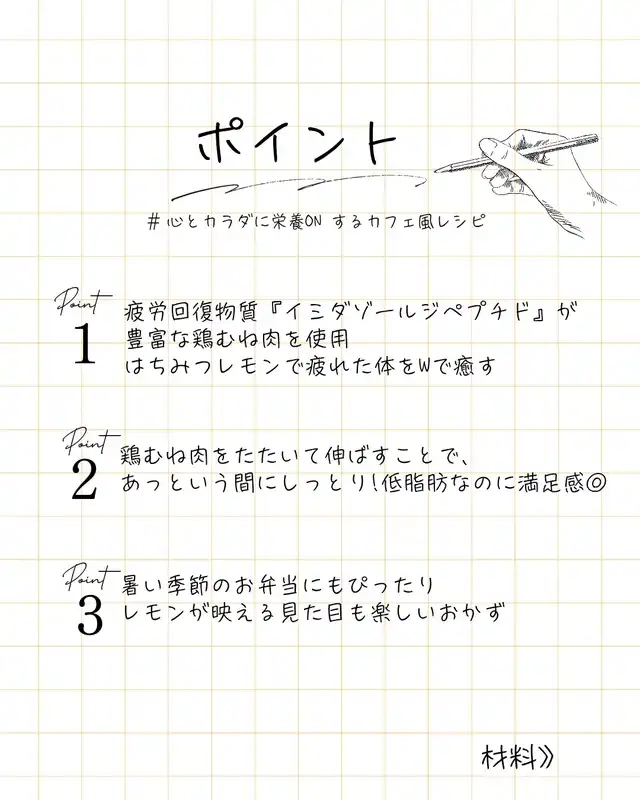 ポイント
#心とカラダに栄養ON するカフェ風レシピ
Point
1
疲労回復物質『イミダゾールジペプチド』が
豊富な鶏むね肉を使用
はちみつレモンで疲れた体をWで癒す
Point
2
鶏むね肉をたたいて伸ばすことで、
あっという間にしっとり!低脂肪なのに満足感◎
Point
3
暑い季節のお弁当にもぴったり
レモンが映える見た目も楽しいおかず
材料》